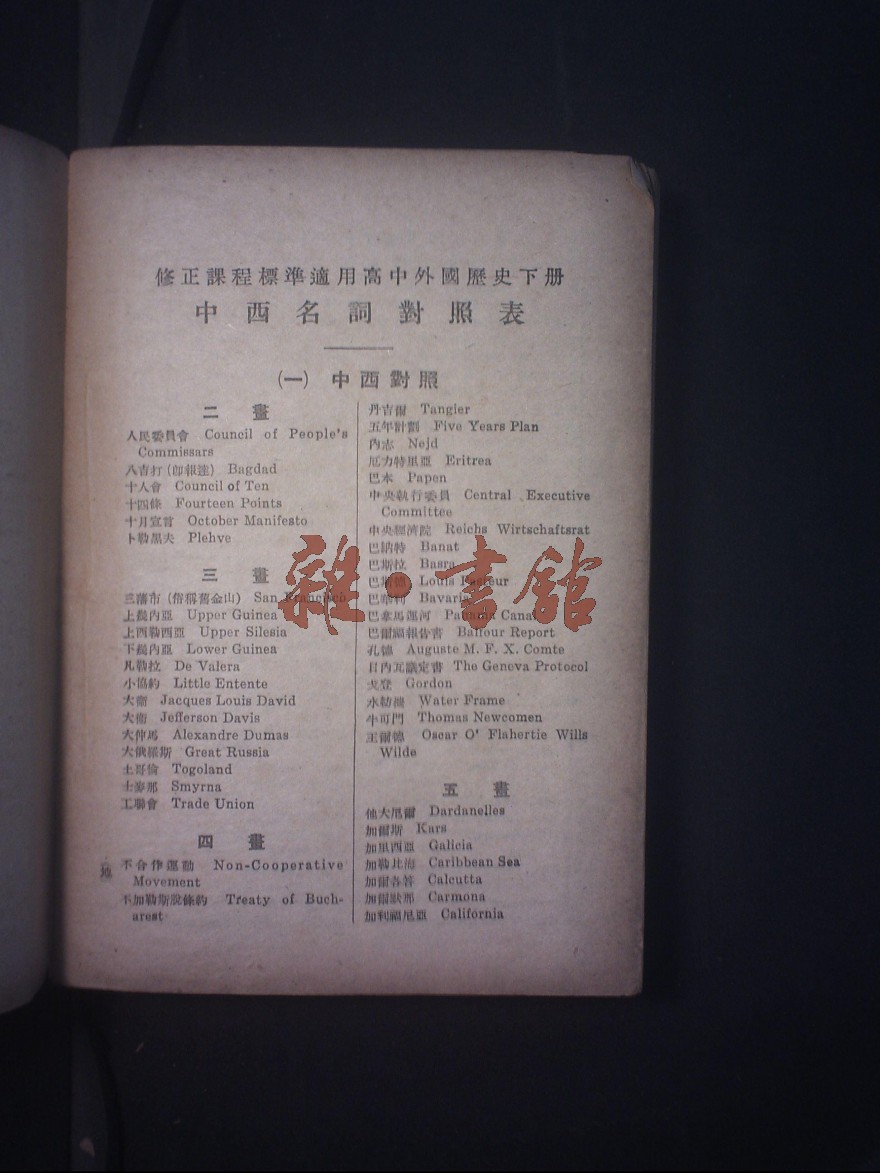 修正課程標準適用高中外國歷史下册
中西名詞對照表
(一) 中西對照
二 畫
人民委員會 Council of People's
Commissars
八吉打 (卽報達) Bagdad
十人會 Council of Ten
十四條 Fourteen Points
十月宣言 October Manifesto
卜勒黑夫 Plehve
三 畫
三藩市 (俗稱舊金山) San Francisco
上幾內亞 Upper Guinea
上西勒西亞 Upper Silesia
下幾內亞 Lower Guinea
凡勒拉 De Valera
小協約 Little Entente
大衞 Jacques Louis David
大衞 Jefferson Davis
大仲馬 Alexandre Dumas
大俄羅斯 Great Russia
土哥倫 Togoland
士麥那 Smyrna
工聯會 Trade Union
四 畫
不合作運動 Non-Cooperative
Movement
不加勒斯脫條約 Treaty of Buch-
arest
丹吉爾 Tangier
五年計劃 Five Years Plan
內志 Nejd
厄力特里亞 Eritrea
巴本 Papen
中央執行委員 Central Executive
Committee
中央經濟院 Reichs Wirtschaftsrat
巴納特 Banat
巴斯拉 Basra
巴斯德 Louis Pasteur
巴華利 Bavaria
巴拿馬運河 Panama Canal
巴爾福報告書 Balfour Report
孔德 Auguste M. F. X. Comte
日內瓦議定書 The Geneva Protocol
戈登 Gordon
水紡機 Water Frame
牛可門 Thomas Newcomen
王爾德 Oscar O' Flahertie Wills
Wilde
五 畫
他大尼爾 Dardanelles
加爾斯 Kars
加里西亞 Galicia
加勒比海 Caribbean Sea
加爾各答 Calcutta
加爾默那 Carmona
加利福尼亞 California
雜·書館